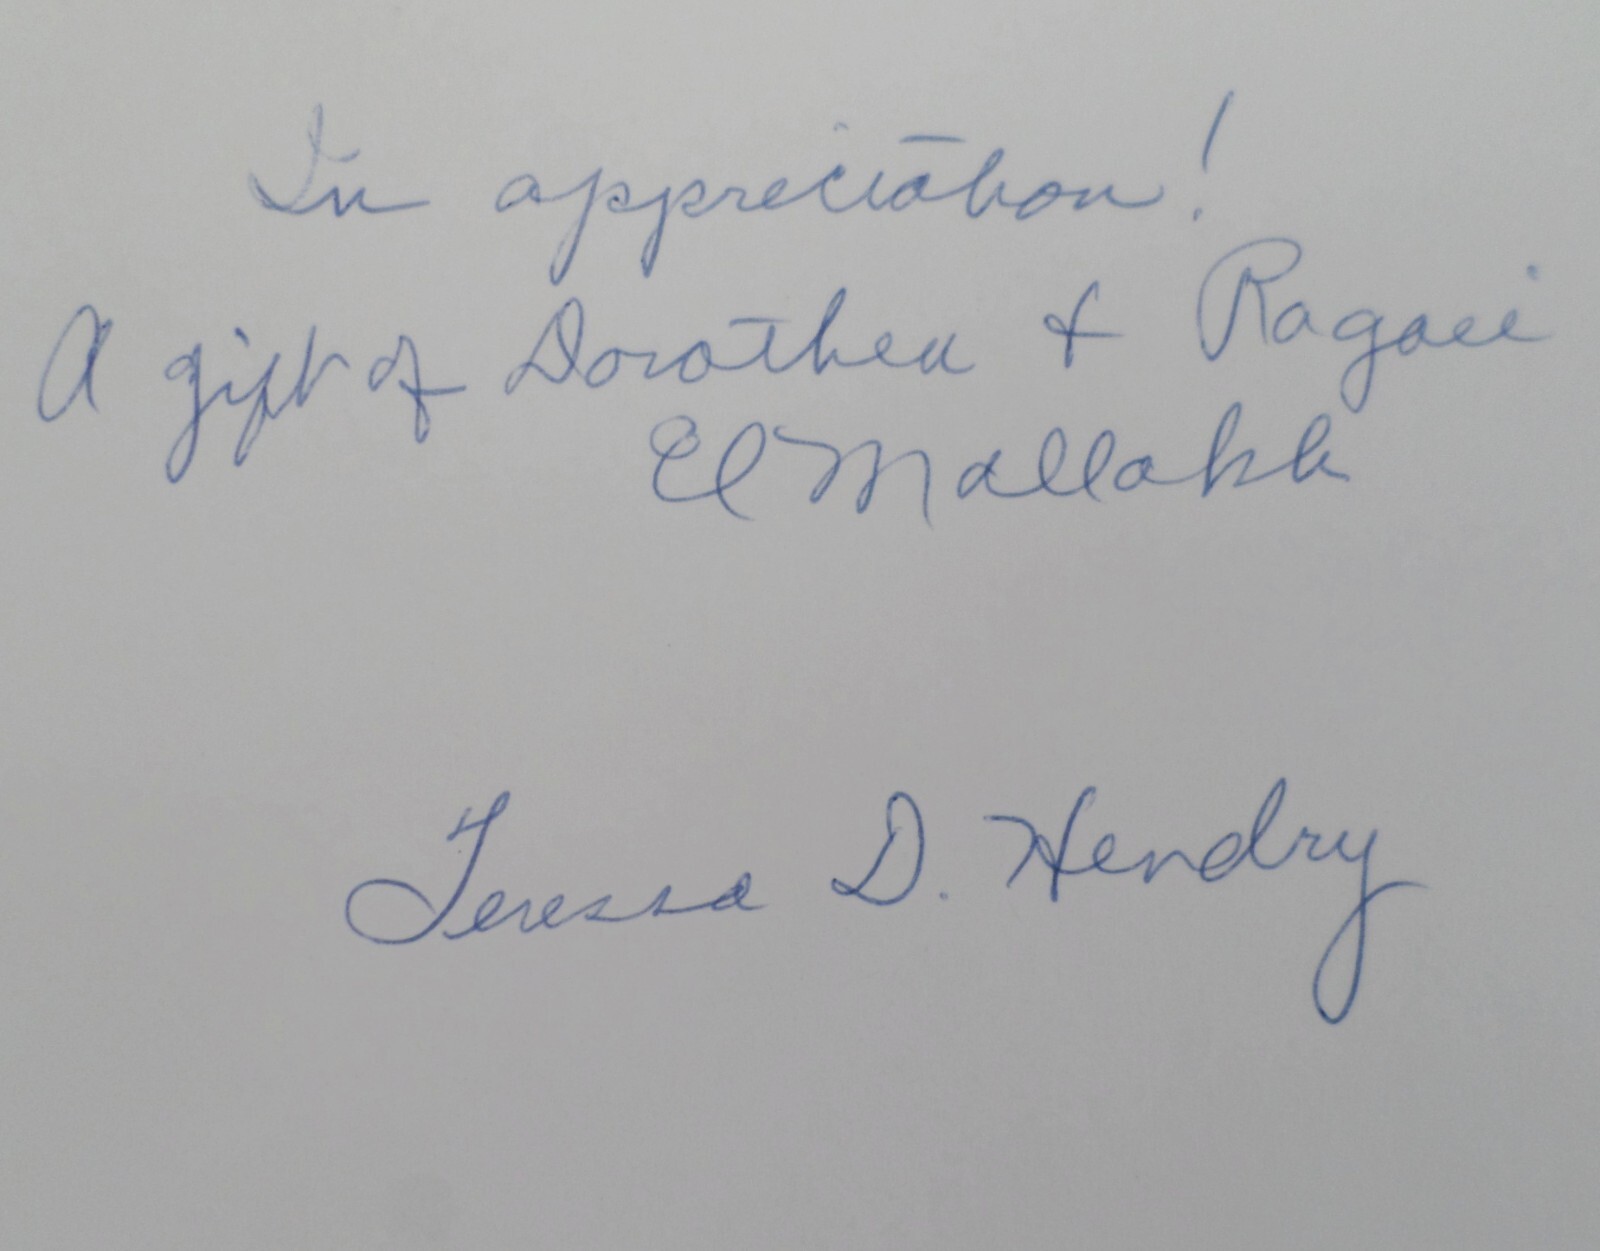 In appreciation!
A gift of Dorothea & Ragaei
El Mallakh
Teressa D. Hendry